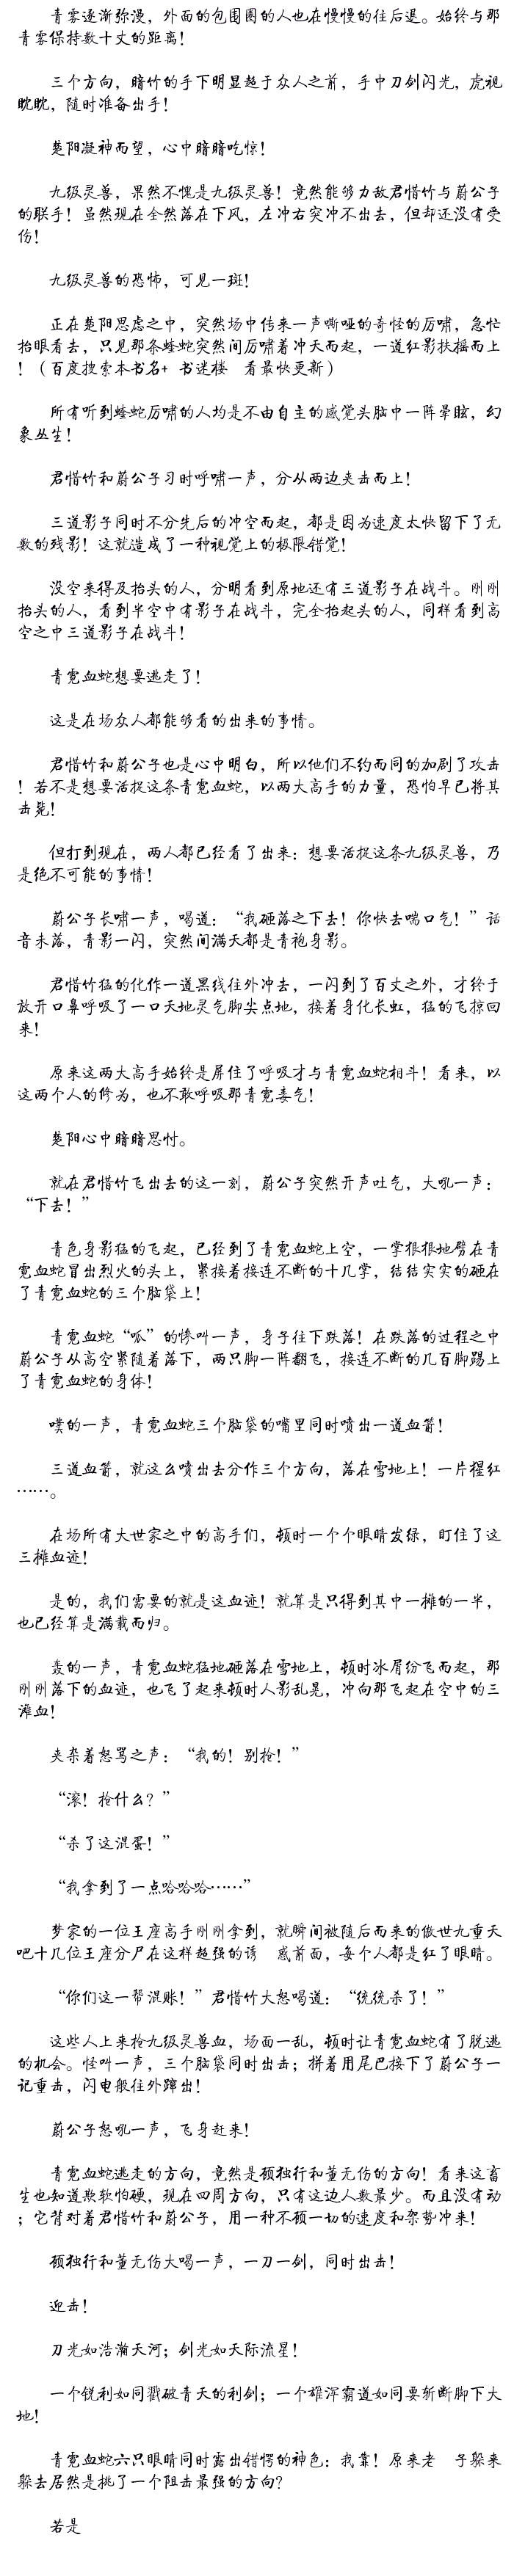 青雾逐渐弥漫，外面的包围圈的人也在慢慢的往后退。始终与那
青雾保持数十丈的距离！
三个方向，暗竹的手下明显超于众人之前，手中刀剑闪光，虎视
眈眈，随时准备出手！
楚阳凝神而望，心中暗暗吃惊！
九级灵兽，果然不愧是九级灵兽！竟然能够力敌君惜竹与蔚公子
的联手！虽然现在全然落在下风，左冲右突冲不出去，但却还没有受
伤！
九级灵兽的恐怖，可见一斑！
正在楚阳思虑之中，突然场中传来一声嘶哑的奇怪的厉啸，急忙
抬眼看去，只见那条蛭蛇突然间厉啸着冲天而起，一道红影扶摇而上
！（百度搜索本书名+ 书迷楼 看最快更新）
所有听到蛭蛇厉啸的人均是不由自主的感觉头脑中一阵晕眩，幻
象丛生！
君惜竹和蔚公子习时呼啸一声，分从两边夹击而上！
三道影子同时不分先后的冲空而起，都是因为速度太快留下了无
数的残影！这就造成了一种视觉上的极限错觉！
没空来得及抬头的人，分明看到原地还有三道影子在战斗。刚刚
抬头的人，看到半空中有影子在战斗，完全抬起头的人，同样看到高
空之中三道影子在战斗！
青霓血蛇想要逃走了！
这是在场众人都能够看的出来的事情。
君惜竹和蔚公子也是心中明白，所以他们不约而同的加剧了攻击
！若不是想要活捉这条青霓血蛇，以两大高手的力量，恐怕早已将其
击毙！
但打到现在，两人都已经看了出来：想要活捉这条九级灵兽，乃
是绝不可能的事情！
蔚公子长啸一声，喝道：“我砸落之下去！你快去喘口气！”话
音未落，青影一闪，突然间满天都是青袍身影。
君惜竹猛的化作一道黑线往外冲去，一闪到了百丈之外，才终于
放开口鼻呼吸了一口天地灵气脚尖点地，接着身化长虹，猛的飞掠回
来！
原来这两大高手始终是屏住了呼吸才与青霓血蛇相斗！看来，以
这两个人的修为，也不敢呼吸那青霓毒气！
楚阳心中暗暗思忖。
就在君惜竹飞出去的这一刻，蔚公子突然开声吐气，大吼一声：
“下去！”
青色身影猛的飞起，已经到了青霓血蛇上空，一掌狠狠地劈在青
霓血蛇冒出烈火的头上，紧接着接连不断的十几掌，结结实实的砸在
了青霓血蛇的三个脑袋上！
青霓血蛇“呱”的惨叫一声，身子往下跌落！在跌落的过程之中
蔚公子从高空紧随着落下，两只脚一阵翻飞，接连不断的几百脚踢上
了青霓血蛇的身体！
噗的一声，青霓血蛇三个脑袋的嘴里同时喷出一道血箭！
三道血箭，就这么喷出去分作三个方向，落在雪地上！一片猩红
……。
在场所有大世家之中的高手们，顿时一个个眼睛发绿，盯住了这
三摊血迹！
是的，我们需要的就是这血迹！就算是只得到其中一摊的一半，
也已经算是满载而归。
轰的一声，青霓血蛇猛地砸落在雪地上，顿时冰屑纷飞而起，那
刚刚落下的血迹，也飞了起来顿时人影乱晃，冲向那飞起在空中的三
滩血！
夹杂着怒骂之声：“我的！别抢！”
“滚！抢什么？”
“杀了这混蛋！”
“我拿到了一点哈哈哈……”
梦家的一位王座高手刚刚拿到，就瞬间被随后而来的傲世九重天
吧十几位王座分尸在这样超强的诱 惑前面，每个人都是红了眼睛。
“你们这一帮混账！”君惜竹大怒喝道：“统统杀了！”
这些人上来抢九级灵兽血，场面一乱，顿时让青霓血蛇有了脱逃
的机会。怪叫一声，三个脑袋同时出击；拼着用尾巴接下了蔚公子一
记重击，闪电般往外蹿出！
蔚公子怒吼一声，飞身赶来！
青霓血蛇逃走的方向，竟然是顾独行和董无伤的方向！看来这畜
生也知道欺软怕硬，现在四周方向，只有这边人数最少。而且没有动
；它背对着君惜竹和蔚公子，用一种不顾一切的速度和架势冲来！
顾独行和董无伤大喝一声，一刀一剑，同时出击！
迎击！
刀光如浩瀚天河；剑光如天际流星！
一个锐利如同戳破青天的利剑；一个雄浑霸道如同要斩断脚下大
地！
青霓血蛇六只眼睛同时露出错愕的神色：我靠！原来老 子躲来
躲去居然是挑了一个阻击最强的方向？
若是